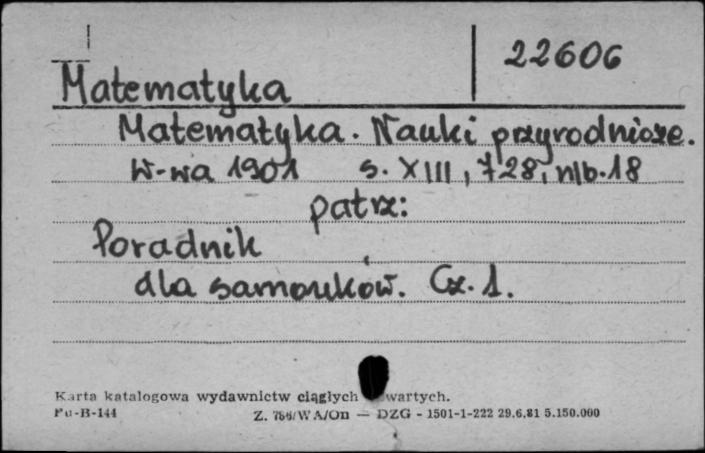 22606
Matematyka
Matematyka. Nauki przyrodnicze.
W-wa 1901 s. XIII, 728, nlb. 18
patrz:
Poradnik
dla samouków. Cz. 1.
Karta katalogowa wydawnictw ciągłych wartych.
Pu-B-144 Z. /WA/On — DZG - 1501-1-222 29.6.81 5.150.000